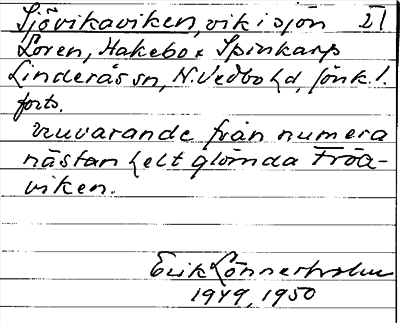 Sjövikaviken, vik i sjön 21
Lören, Hakebo & Spinkarp
Linderås sn, N. Vedbo hd, Jönk. l.
forts.
nuvarande från numera
nästan helt glömda Fröa-
viken.
Erik Lönnerholm
1949, 1950